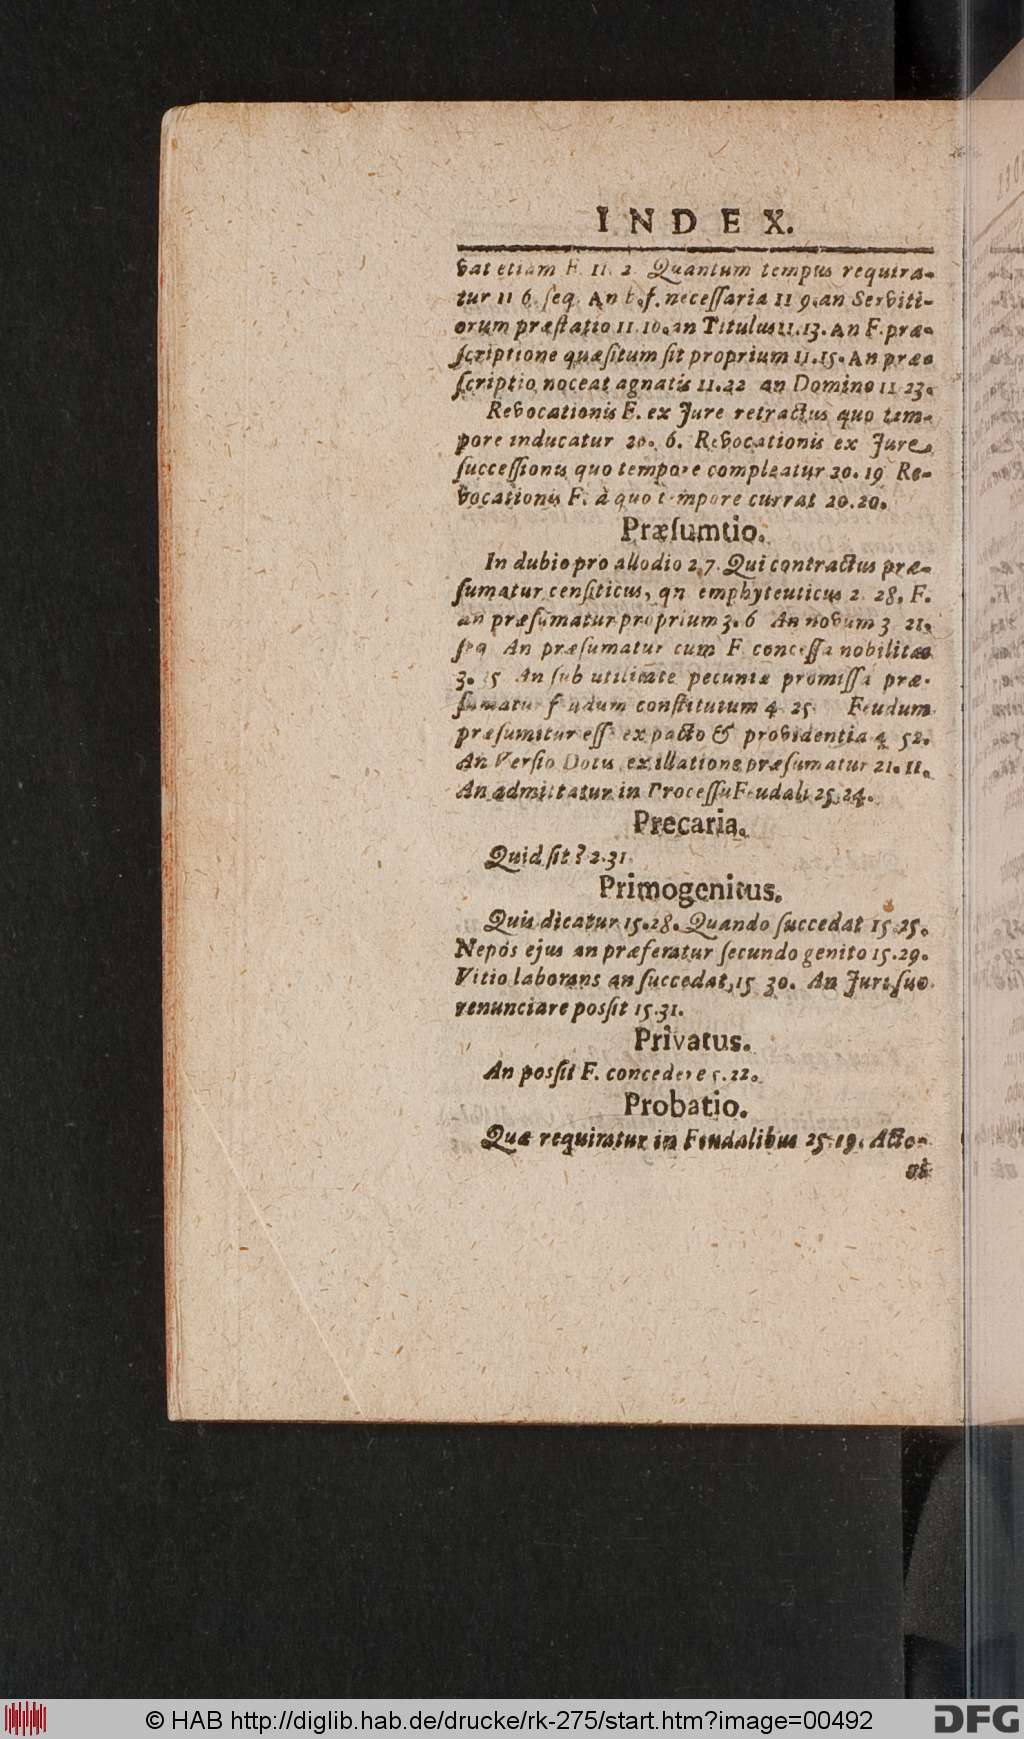 INDEX.
vat etiam F. 11. 2. Quantum tempus requira-
tur 11 6. ſeq. An b. f. neceſſaria 11 9. an Serviti-
orum præſtatio 11. 10. an Titulus 11. 13. An F. præ-
ſcriptione quæſitum ſit proprium 11. 15. An præ-
ſcriptio noceat agnatis 11. 22 an Domino 11 23.
Revocationis F. ex Jure retractus quo tem-
pore inducatur 20. 6. Revocationis ex Jure
ſucceſſionis quo tempore compleatur 20. 19 Re-
vocationis F. à quo tempore currat 20. 20.
Præſumtio.
In dubio pro allodio 2, 7. Qui contractus præ-
ſumatur cenſiticus, qn emphyteuticus 2. 28. F.
an præſumatur proprium 3. 6 An novum 3 21.
ſeq An præſumatur cum F. conceſſa nobilitas
3. 35 An ſub utilitate pecuniæ promiſſa præ-
ſumatur feudum conſtitutum 4. 25. Feudum
præſumitur eſſe ex pacto & providentia 4 52.
An Verſio Dotis ex illatione præſumatur 21. 11.
An admittatur in Proceſſu Feudali 25. 24.
Precaria.
Quid ſit? 2. 31.
Primogenitus.
Quis dicatur 15. 28. Quando ſuccedat 15. 25.
Nepos ejus an præferatur ſecundo genito 15. 29.
Vitio laborans an ſuccedat, 15 30. An Juri ſuo
renunciare poſſit 15. 31.
Privatus.
An poſſit F. concedere 5. 22.
Probatio.
Quæ requiratur in Feudalibus 25. 19. Acto-
© HAB http://diglib.hab.de/drucke/rk-275/start.htm?image=00492
DFG